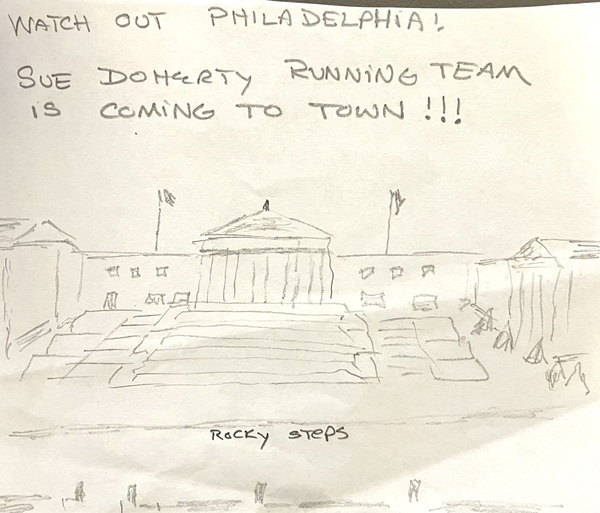 WATCH OUT PHILADELPHIA!
SUE DOHERTY RUNNING TEAM
IS COMING TO TOWN !!!
ROCKY STEPS